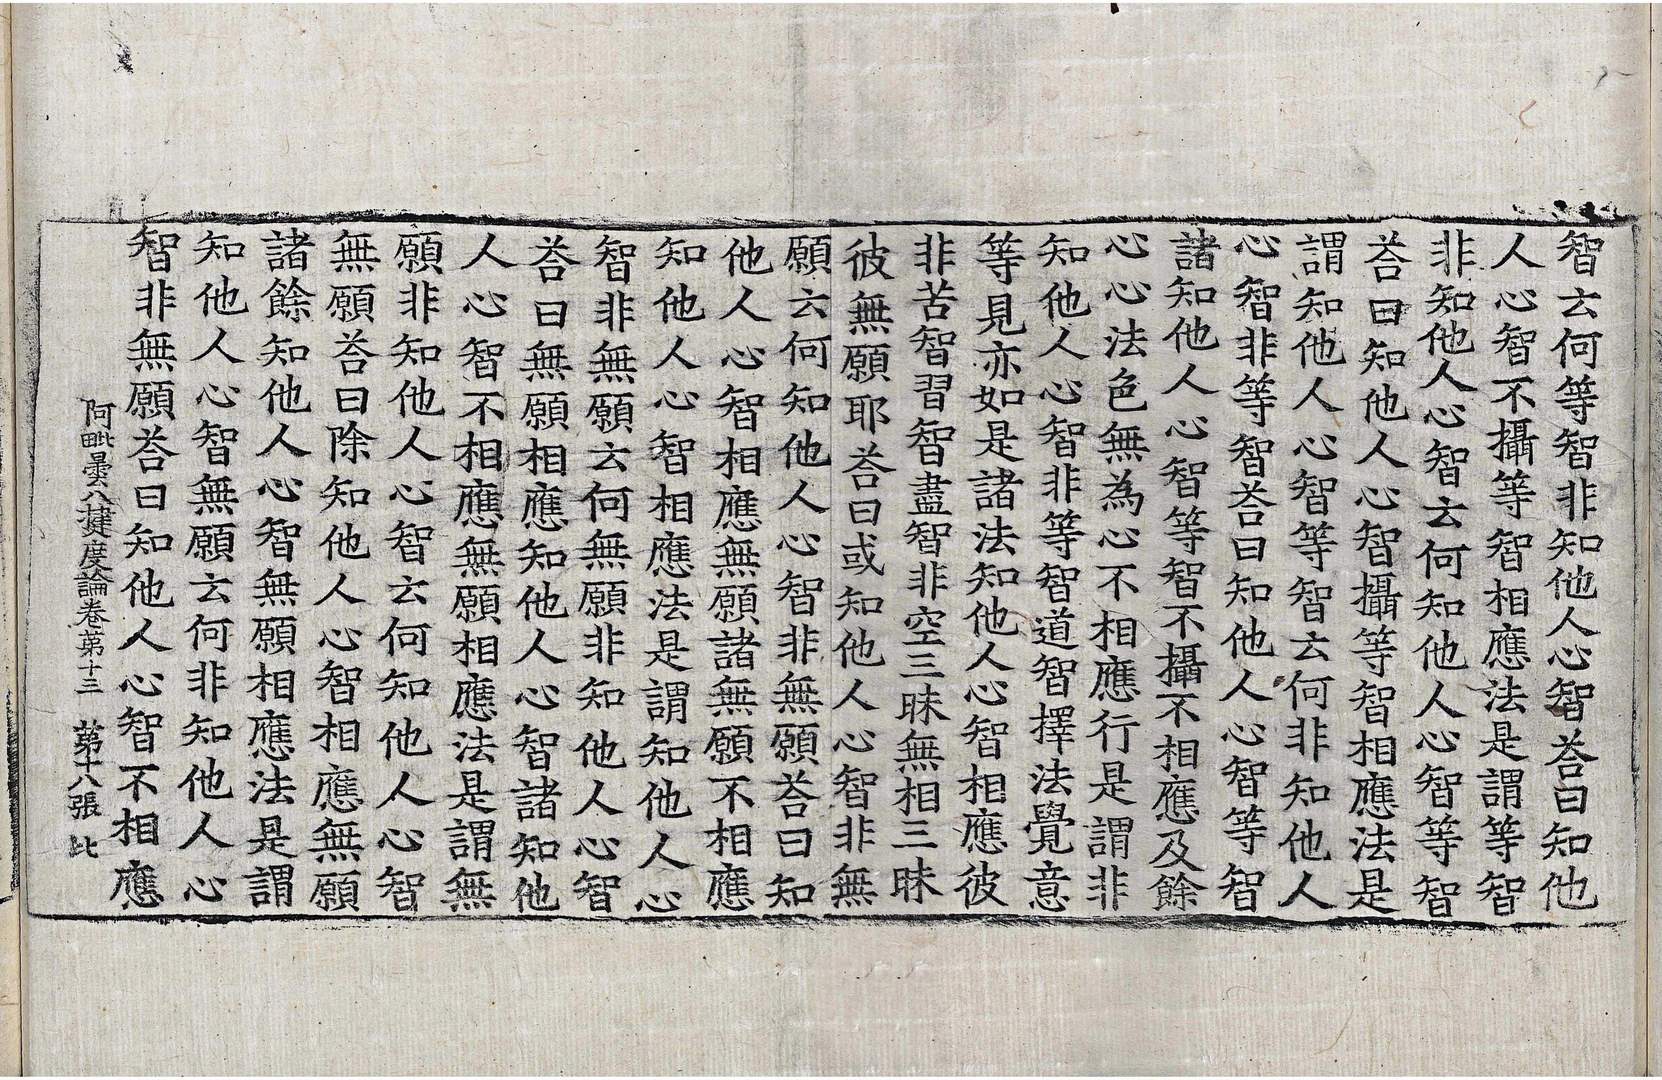 智云何等智非知他人心智荅曰知他
人心智不攝等智相應法是謂等智
非知他人心智云何知他人心智等智
荅曰知他人心智攝等智相應法是
謂知他人心智等智云何非知他人
心智非等智荅曰知他人心智等智
諸知他人心智等智不攝不相應及餘
心心法色無為心不相應行是謂非
知他人心智非等智道智擇法覺意
等見亦如是諸法知他人心智相應彼
非苦智習智盡智非空三昧無相三昧
彼無願耶荅曰或知他人心智非無
願云何知他人心智非無願荅曰知
他人心智相應無願諸無願不相應
知他人心智相應法是謂知他人心
智非無願云何無願非知他人心智
荅曰無願相應知他人心智諸知他
人心智不相應無願相應法是謂無
願非知他人心智云何知他人心智
無願荅曰除知他人心智相應無願
諸餘知他人心智無願相應法是謂
知他人心智無願云何非知他人心
智非無願荅曰知他人心智不相應
阿毗曇八揵度論卷第十三　第十八張　比